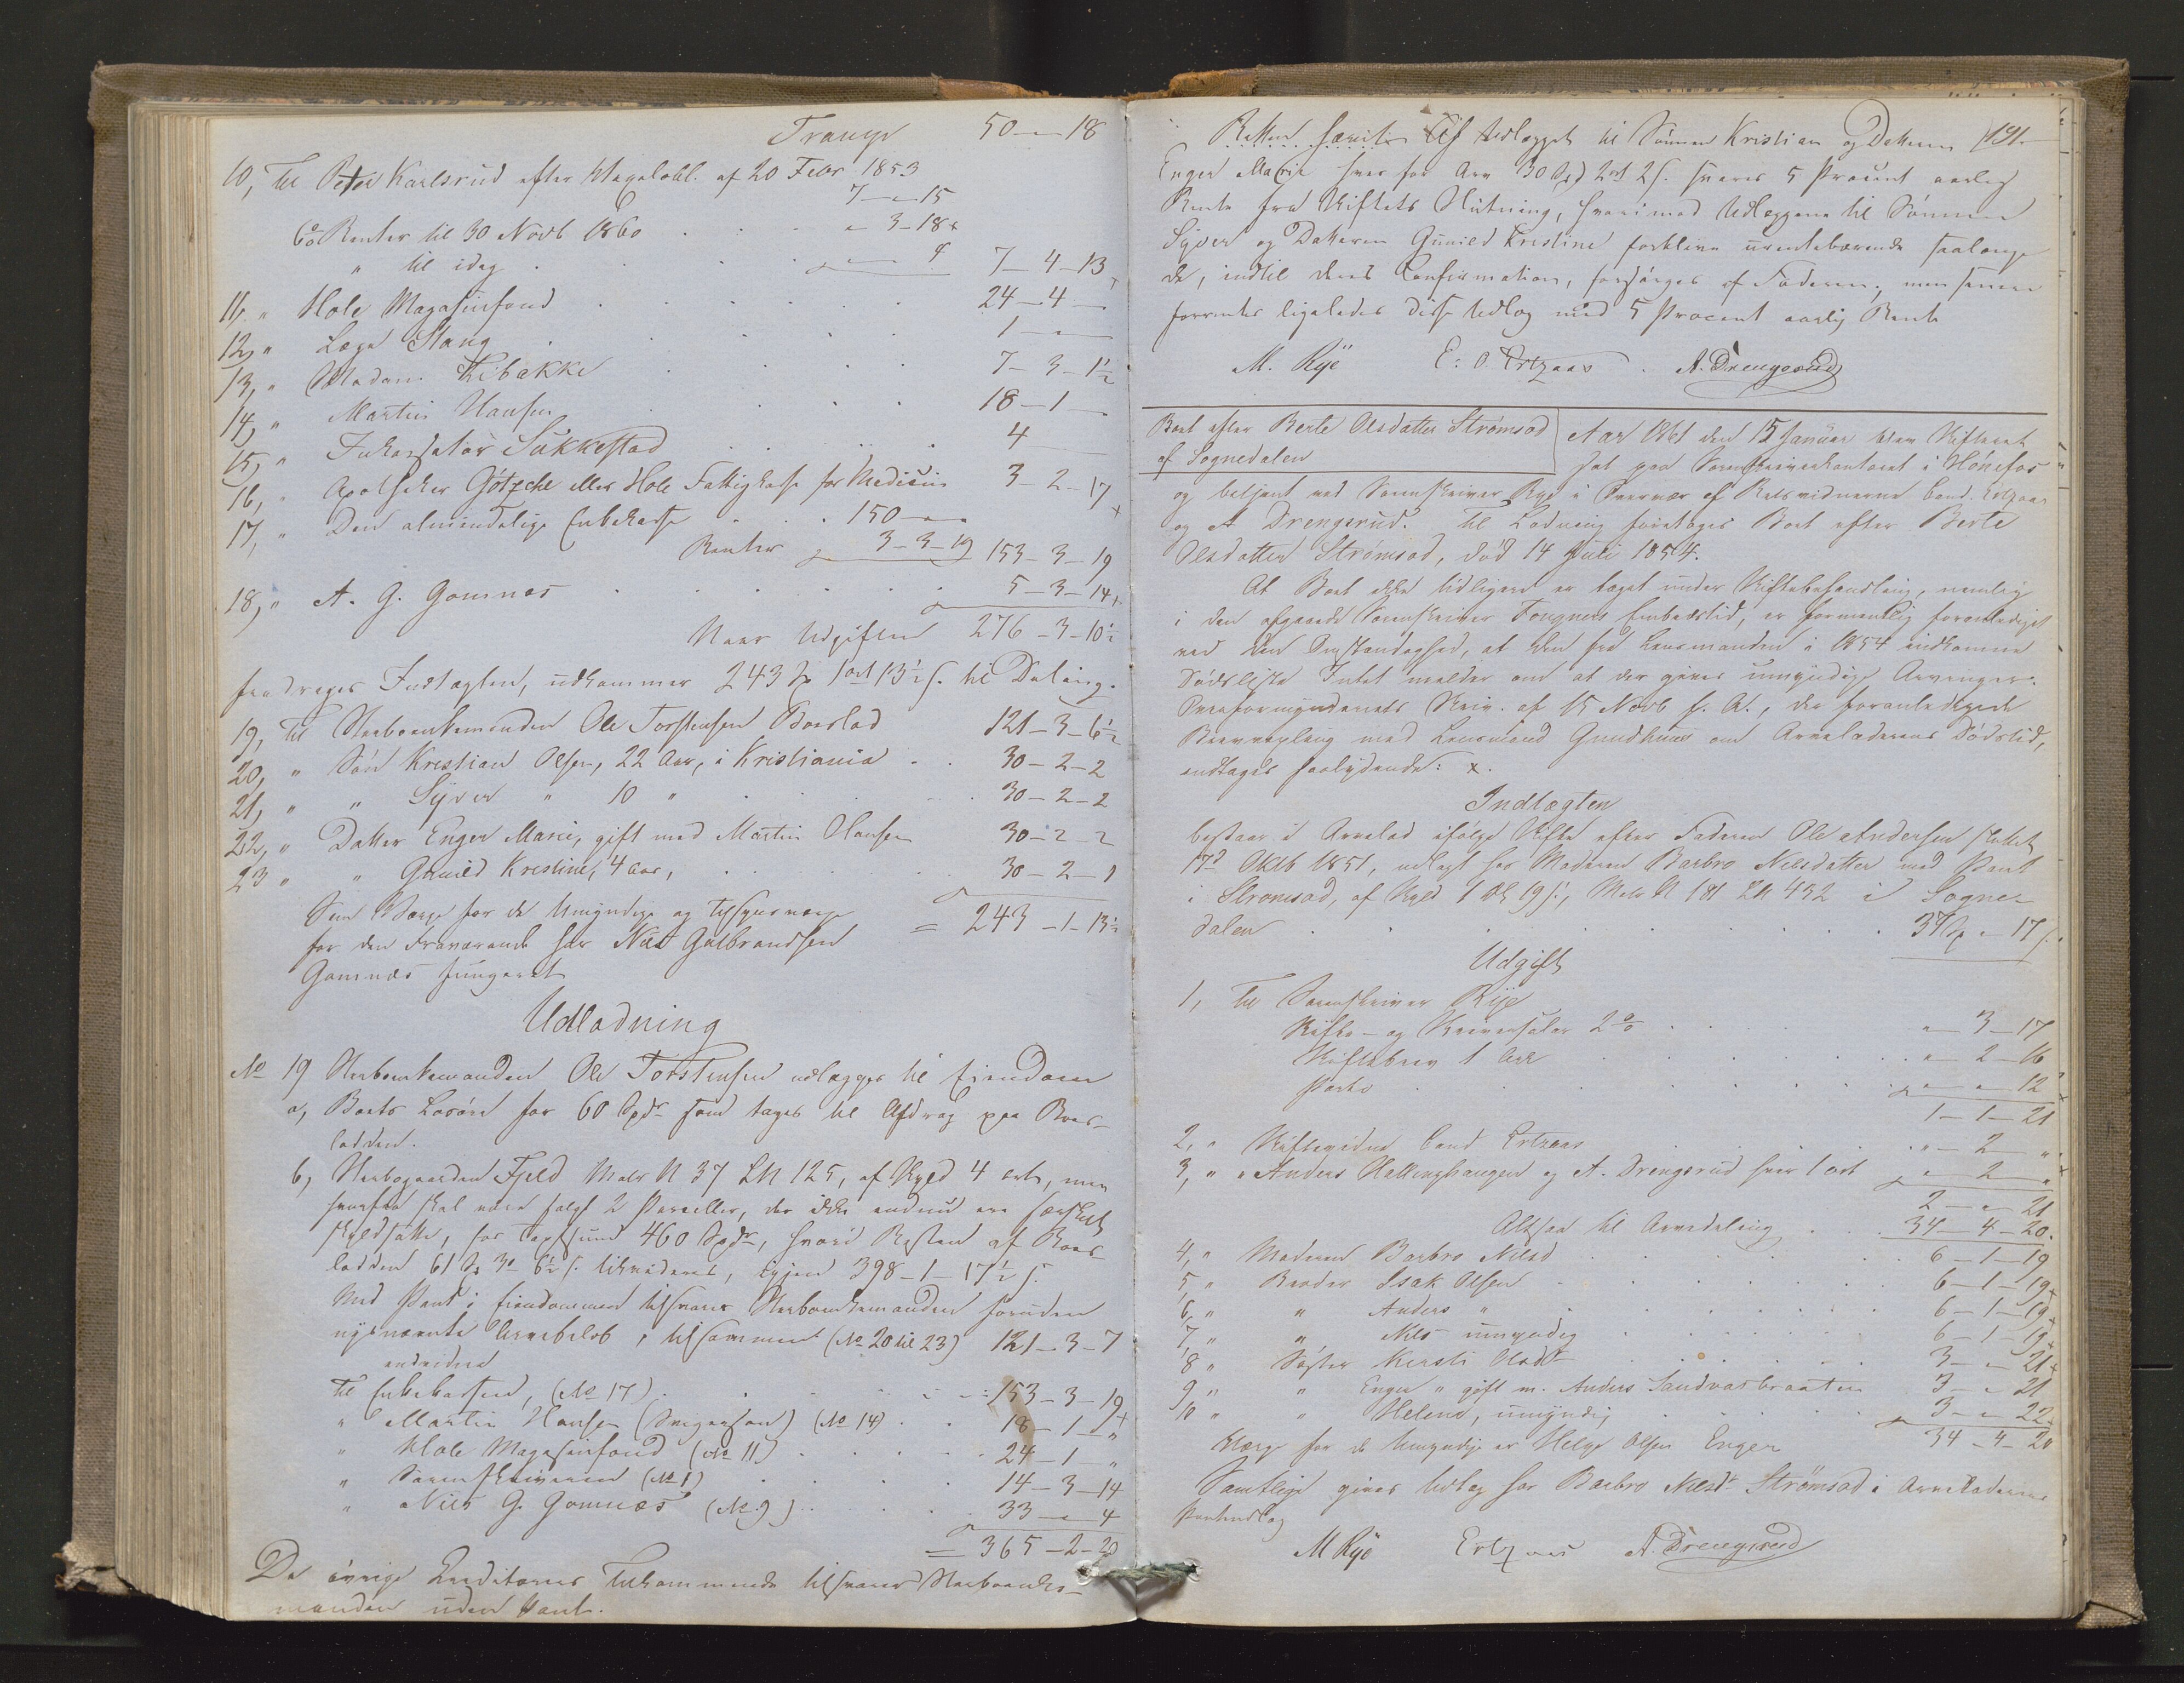 Transp. 50 - " - 18
10, Til Peter Karlsrud efter Skyldbl. af 20 Febr 1853
7 - " - 15
6% Renter til 30 Novb 1860 . . . " - 3 - 18
" til idag . . . " - " - 4 7 - 4 - 13
11, " Hole Magasinfond . . . 24 - 4 -
12, " Læge Stang . . . 1 - " -
13, " Madam Libakke . . . 7 - 3 - 1½
14, " Martin Hansen . . . 18 - 1 -
15, " Inkassator Sukkestad . . . 4
16, " Apotheker Götzche eller Hole Fattigkasse for Medicin 3 - 2 - 17
17, " Den almindelige Enkekasse . . . 150 - " -
Renter 3 - 3 - 19 153 - 3 - 19
18, " A. G. Gomnæs . . . 5 - 3 - 14
Naar Udgiften 276 - 3 - 10½
fradrages Indtægten, udkommer 243 Sp 1 ort 13½ s. til Deling.
19, Til Sterboenkemanden Ole Torstensen Boeslod 121 - 3 - 6½
20, " Søn Kristian Olsen, 22 Aar, i Kristiania . . 30 - 2 - 2
21, " " Syver " 10 " . . . 30 - 2 - 2
22, " Datter Enger Marie, gift med Martin Hansen 30 - 2 - 2
23 " " Gunild Kristine, 4 Aar, . . . 30 - 2 - 1
Som Værge for de Umyndige og Tilsynsværge = 243 - 1 - 13½
for den Fraværende har Nils Gulbrandsen
Gomnæs fungeret
Udlodning
No 19 Sterboenkemanden Ole Torstensen udlægges til Eiendom
a, Boets Løsøre for 60 Spdr som tages til Afdrag paa Boes-
lodden.
b, Sterbogaarden Fjeld Matr N 37 LN 125, af Skyld 4 ort, men
hvorfra skal være solgt 2 Parceller, der ikke endnu ere særskilt
skyldsatte, for Taxtsum 460 Spdr, hvori Resten af Boes-
lodden 61 Sp 3 ort 6½ s. likvideres, igjen 398 - 1 - 17½ s.
Med Pant i Eiendommen tilsvarer Sterboenkemanden foruden
nysnævnte Arvebeløb, tilsammen (No 20 til 23) 121 - 3 - 7
endvidere
Til Enkekassen, (No 17) . . . 153 - 3 - 19
" Martin Hansen (Svigersøn) (No 14) . . 18 - 1 - "
" Hole Magasinfond (No 11) . . . 24 - 1 - "
" Sorenskriveren (No 1) . . . 14 - 3 - 14
" Nils G. Gomnæs (No 9) . . . 33 - " - 4
= 365 - 2 - 20
De øvrige Kreditorers Tilkommende tilsvarer Sterboenke-
manden uden Pant.
191.
Udlægget til Sønnen Kristian og Datteren
Enger Marie hver for Arv 30 Spd 2 ort 2 s. svares 5 Procent aarlig
Rente fra Skiftets Slutning, hvorimod Udlæggene til Sønnen
Syver og Datteren Gunild Kristine forblive urentebærende saalænge
de, indtil deres Confirmation, forsørges af Faderen; men senere
forrentes ligeledes disse Udlæg med 5 Procent aarlig Rente
M. Rye E: O. Ertzaas . A. Drengsrud
Boet efter Berte Olsdatter Strömsod
af Sognedalen
Aar 1861 den 15 Januar blev Skifteret
sat paa Sorenskriverkontoret i Hönefos
og betjent ved Sorenskriver Rye i Overvær af Retsvidnerne Cand. Ertzaas
og A Drengsrud. Til Lodning foretoges Boet efter Berte
Olsdatter Strömsod, död 14 Juli 1854.
At Boet ikke tidligere er taget under Skiftebehandling, nemlig
i den afgaaede Sorenskriver Fougners Embedstid, er formentlig foranlediget
ved den Omstændighed, at den fra Lensmanden i 1854 indkomne
Dödsliste Intet melder om at der gives umyndige Arvinger.
Overformynderiets Skriv. af 15 Novb f. A., der foranledigede
Brevvexling med Lensmand Gundhus om Arveladerens Dödstid,
indtages saalydende: x.
Indtægten
bestaar i Arvelod ifølge Skifte efter Faderen Ole Andersen sluttet
17de Oktb 1851, udlagt hos Moderen Barbro Nilsdatter med Pant
i Strömsod, af Skyld 1 Dl 19 s:, Matr N 181 LN 452 i Sogne-
dalen . . . 37 Sp " 17 s.
Udgift
1, Til Sorenskriver Rye
Skifte- og Skriversalær 2% . . . " - 3 - 17
Skiftebrev 1 Ark . . . " - 2 - 16
Porto . . . " - " - 12
1 - 1 - 21
2, " Skiftevidne Cand Ertzaas . . . " - 2 - "
3, " " Anders Hallingshaugen og A. Drengsrud hver 1 ort " - 2 - "
2 - " - 21
Altsaa til Arvedeling . . 34 - 4 - 20.
4, " Moderen Barbro Nilsd . . . 6 - 1 - 19
5, " Broder Isak Olsen . . . 6 - 1 - 19
6, " " Anders " . . . 6 - 1 - 19
7, " " Nils umyndig . . . 6 - 1 - 19
8 " Søster Kersti Olsdt . . . 3 - " - 21
9 " " Enger " gift m. Anders Sandvasbraaten 3 - " 21
10 " " Helene, umyndig . . . 3 - " - 22
Værge for de Umyndige er Helge Olsen Enger 34 - 4 - 20
Samtlige gives Udlæg hos Barbro Nilsdt Strömsod i Arveladerens
Pantudlæg
M Rye Ertzaas A. Drengsrud